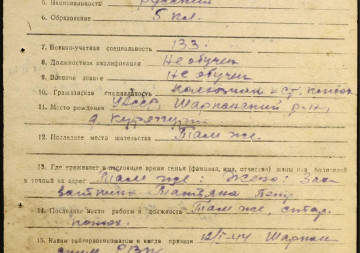 5. Национальность русский
6. Образование 5 кл.
7. Военно-учетная специальность 133
8. Должностная квалификация Не обучен
9. Военное звание Не обучен
10. Гражданская специальность
11. Место рождения УАССР, Шарканский р-н,
д.
12. Последнее место жительства Там же.
13. Где проживает в настоящее время семья (фамилия, имя, отчество) жены или родителей
и точный их адрес Там же: Жена:
Татьяна
14. Последнее место работы и должность Там же,
15. Каким райвоенкоматом и когда призван 12/I-44 Шаркан
ским РВК